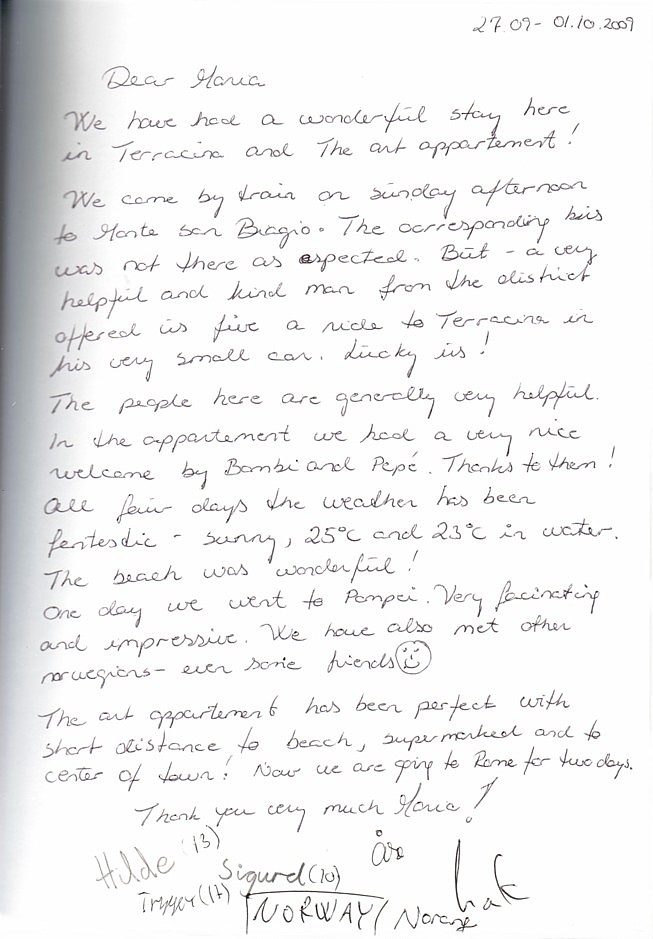 27.09 - 01.10.2009
Dear Maria
We have had a wonderful stay here
in Terracina and The art appartement!
We came by train on sunday afternoon
to Monte san Biagio. The corresponding bus
was not there as espected. But - a very
helpful and kind man from the district
offered us five a ride to Terracina in
his very small car. Lucky us!
The people here are generally very helpful.
In the appartement we had a very nice
welcome by Bambi and Pepé. Thanks to them!
All four days the weather has been
fantastic - sunny, 25°C and 23°C in water.
The beach was wonderful!
One day we went to Pompei. Very facinating
and impressive. We have also met other
norwegians - even some friends
The art appartement has been perfect with
short distance to beach, supermarked and to
center of town! Now we are going to Rome for two days.
Thank you very much Maria!
Hilde (13)
Sigurd (10)
Åse
Trygve (17)
NORWAY / Norange